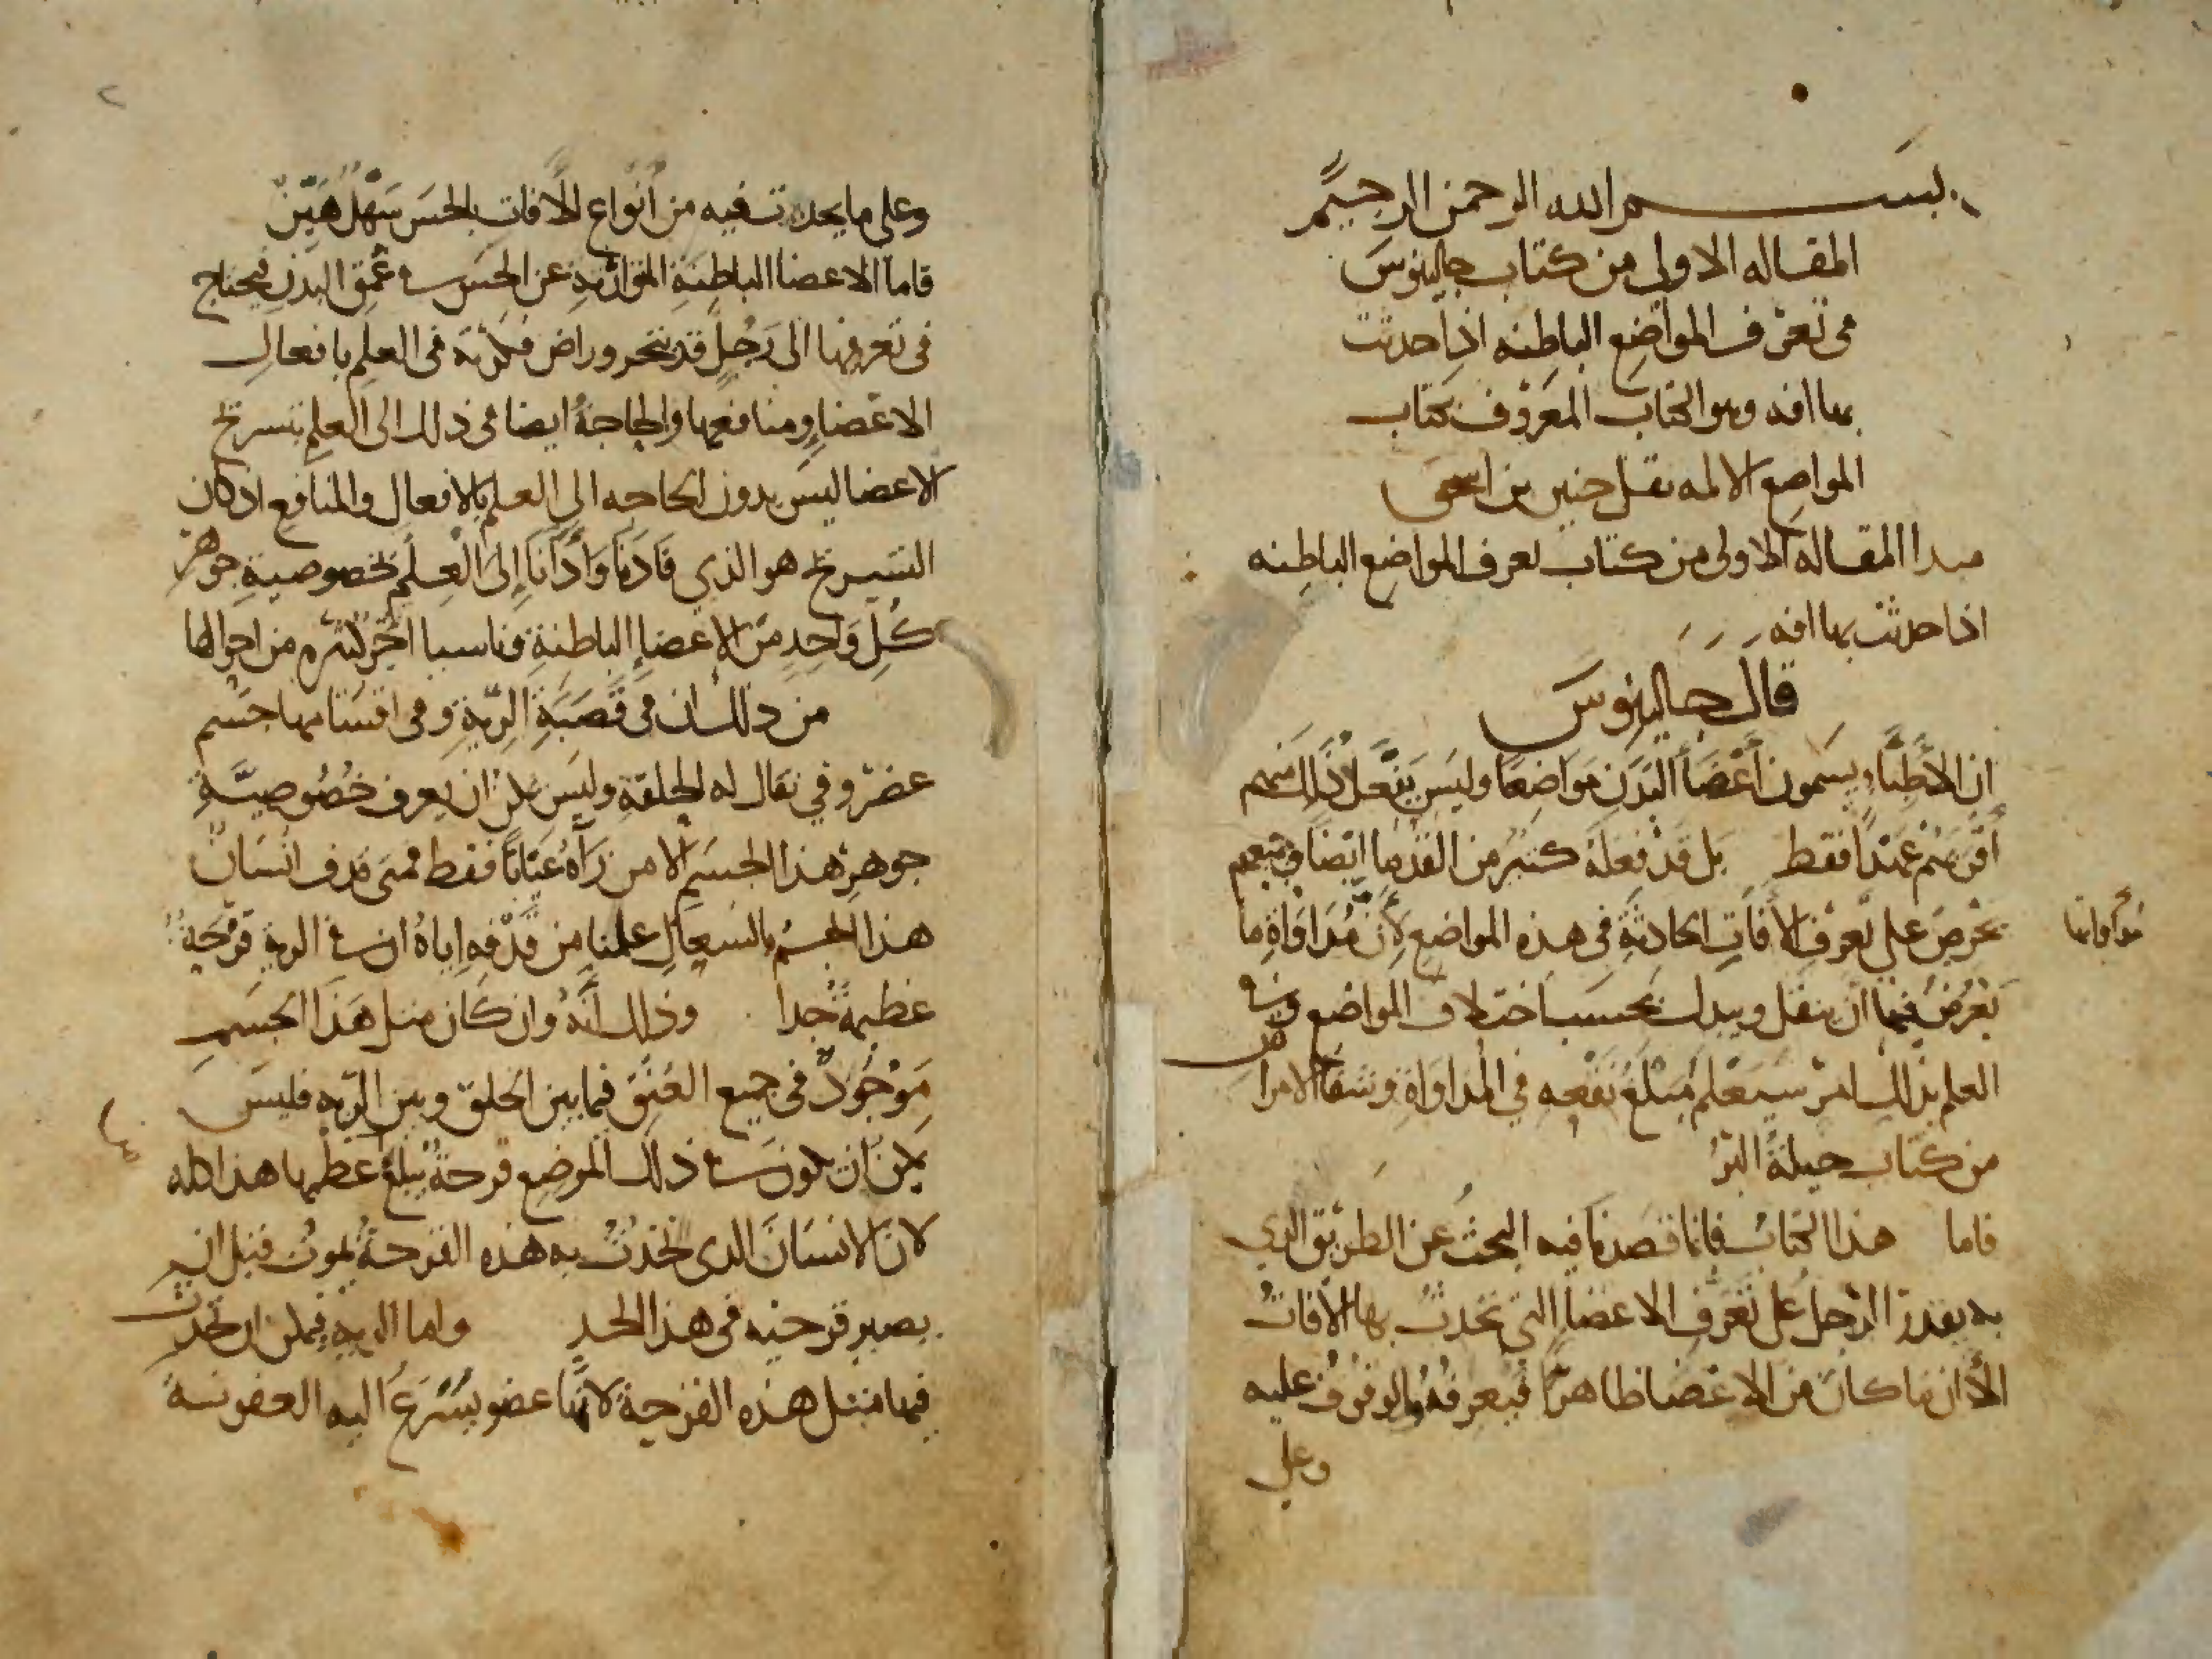 بسم الله الرحمن الرحيم
المقاله الاولى من كتاب جالينوس
فى تعرف المواضع الباطنه اذا حدثت
بها افه وهو الكتاب المعروف بكتاب
المواضع الالمه نقل حنين بن اسحق
مبدا المقاله الاولى من كتاب تعرف المواضع الباطنه
اذا حدثت بها افه
قال جالينوس
ان الأطبا يسمون أعضأ البدن مواضعا وليس يفعل ذلك منهم
أقربهم عهدا فقط بل قد فعله كثير من القدما ايضا وجميعهم
يحرص على تعرف الأفات الحادثة فى هذه المواضع لأن مداواة ما
مداواتها
يعرض فيها ان ينتقل ويبدل بحسب اختلاف المواضع وفى
العلم بذلك امر ستعلم مبلغ نفعه في المداواة وشفا الامراض
من كتاب حيلة البرؤ
فاما هذا الكتاب فانما قصدنا فيه البحث عن الطريق الذي
به يقدر الرجل على تعرف الاعضا التي تحدث بها الأفات
الا ان ما كان من الاعضا ظاهرا فتعرفه والوقوف عليه
وعلى
وعلى ما يحدث فيه من أنواع الأفات بالحس سهل هين
فاما الاعضا الباطنة المتوارية عن الحس فى عمق البدن فيحتاج
فى تعرفها الى رجل قد تبحر وراض فكرته فى العلم بافعال
الاعضا ومنافعها والحاجة ايضا فى ذلك الى العلم بتشريح
الاعضا ليس بدون الحاجه الى العلم بالافعال والمنافع اذ كان
التشريح هو الذي قادنا وأدانا إلى العلم بخصوصية جوهر
كل واحد من الاعضا الباطنة وباسباب اخر كثيرة من احوالها
من ذلك ان فى قصبة الرية وفى اقسامها جسم
غضروفي يقال له الحلقة وليس يمكن ان يعرف خصوصية
جوهر هذا الجسم الا من رآه عيانا فقط فمتى قذف انسان
هذا الجسم بالسعال علمنا من قذفه اياه ان فى الرية قرحة
عظيمة جدا وذلك أنه وان كان مثل هذا الجسم
موجود فى جميع العنق فيما بين الحلق وبين الريه فليس
يمكن ان يكون فى ذلك الموضع قرحة يبلغ عظمها هذا كله
لان الانسان الذى تحدث به هذه القرحة يموت قبل ان
يصير قرحته فى هذا الحد واما الريه فيمكن ان تحدث
فيها مثل هذه القرحة لانها عضو يسرع اليه العفونة